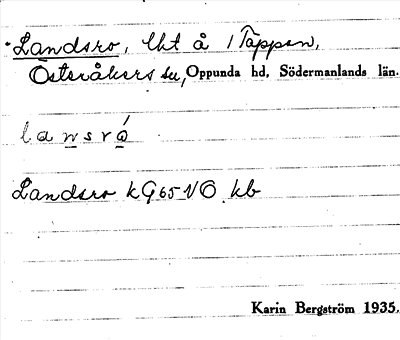 Landsro, lht å 1 Täppan,
Österåkers sn, Oppunda hd, Södermanlands län.
lan̲sró̲
Landsro kG65NO kb
Karin Bergström 1935.